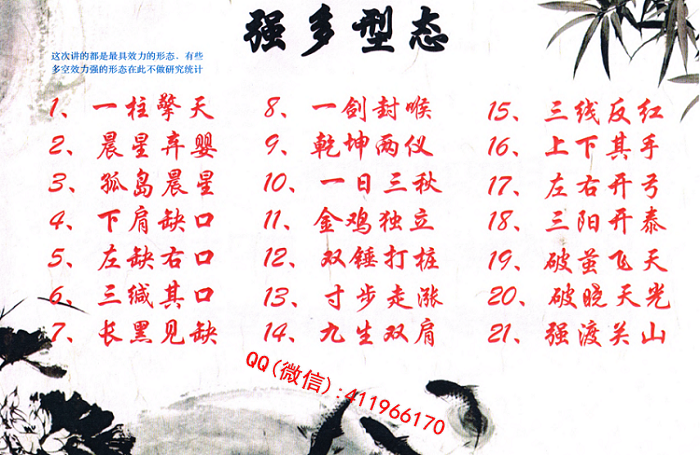 强多型态
这次讲的都是最具效力的形态。有些
多空效力强的形态在此不做研究统计
1、一柱擎天
2、晨星弃婴
3、孤岛晨星
4、下肩缺口
5、左缺右口
6、三缄其口
7、长黑见缺
8、一剑封喉
9、乾坤两仪
10、一日三秋
11、金鸡独立
12、双锤打桩
13、寸步走涨
14、九生双肩
15、三线反红
16、上下其手
17、左右开弓
18、三阳开泰
19、破茧飞天
20、破晓天光
21、强渡关山
QQ(微信):411966170